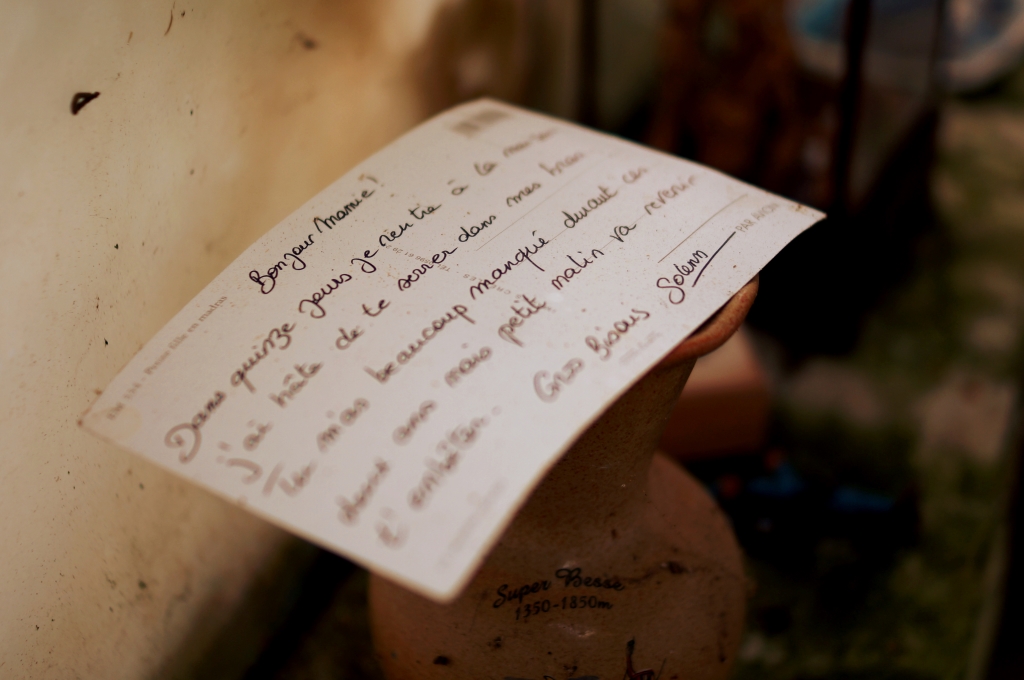 Bonjour Mamie !
Dans quinze jours je rentre à la maison
j'ai hâte de te serrer dans mes bras
Tu m'as beaucoup manqué durant ces
deux ans mais petit malin va revenir
t'embêter.
Gros bisous, Solenn
PAR AVION
Petite fille en madras
Super Besse
1350-1850m